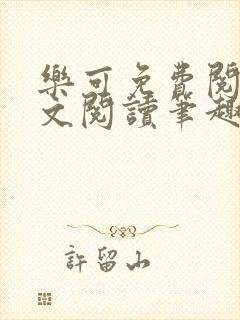 樂可免費閱
文閱讀筆趣
許留山